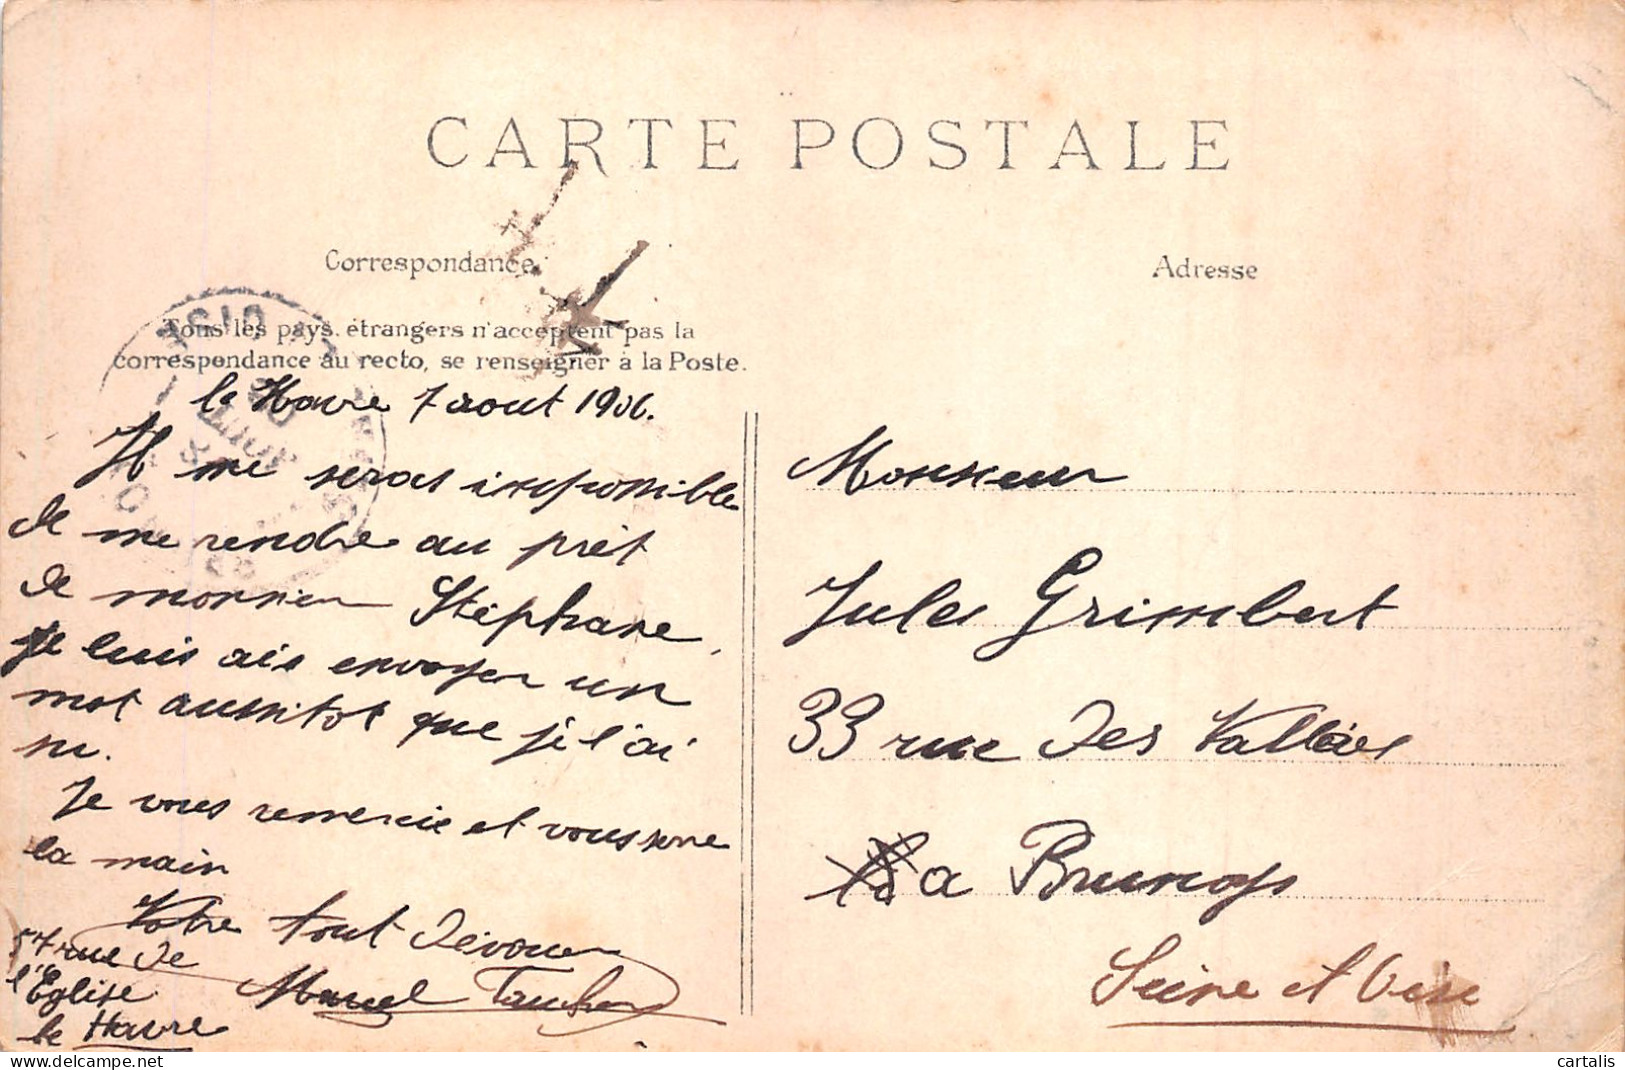 CARTE POSTALE
Correspondance
Tous les pays étrangers n'acceptent pas la
correspondance au recto, se renseigner à la Poste.
le Havre 7 aout 1906.
Il me seras impossible
de me rendre au prêt
de monsieur Stéphane,
je luis ais envoyer un
mot aussitot que je l'ai
su.
Je vous remercie et vous serre
la main
Votre tout dévouer
Marcel
57 rue de
l'Eglise
le Havre
Adresse
Monsieur
Jules Grimbert
33 rue des Vallées
a Brunoy
Seine et Oise
cartalis